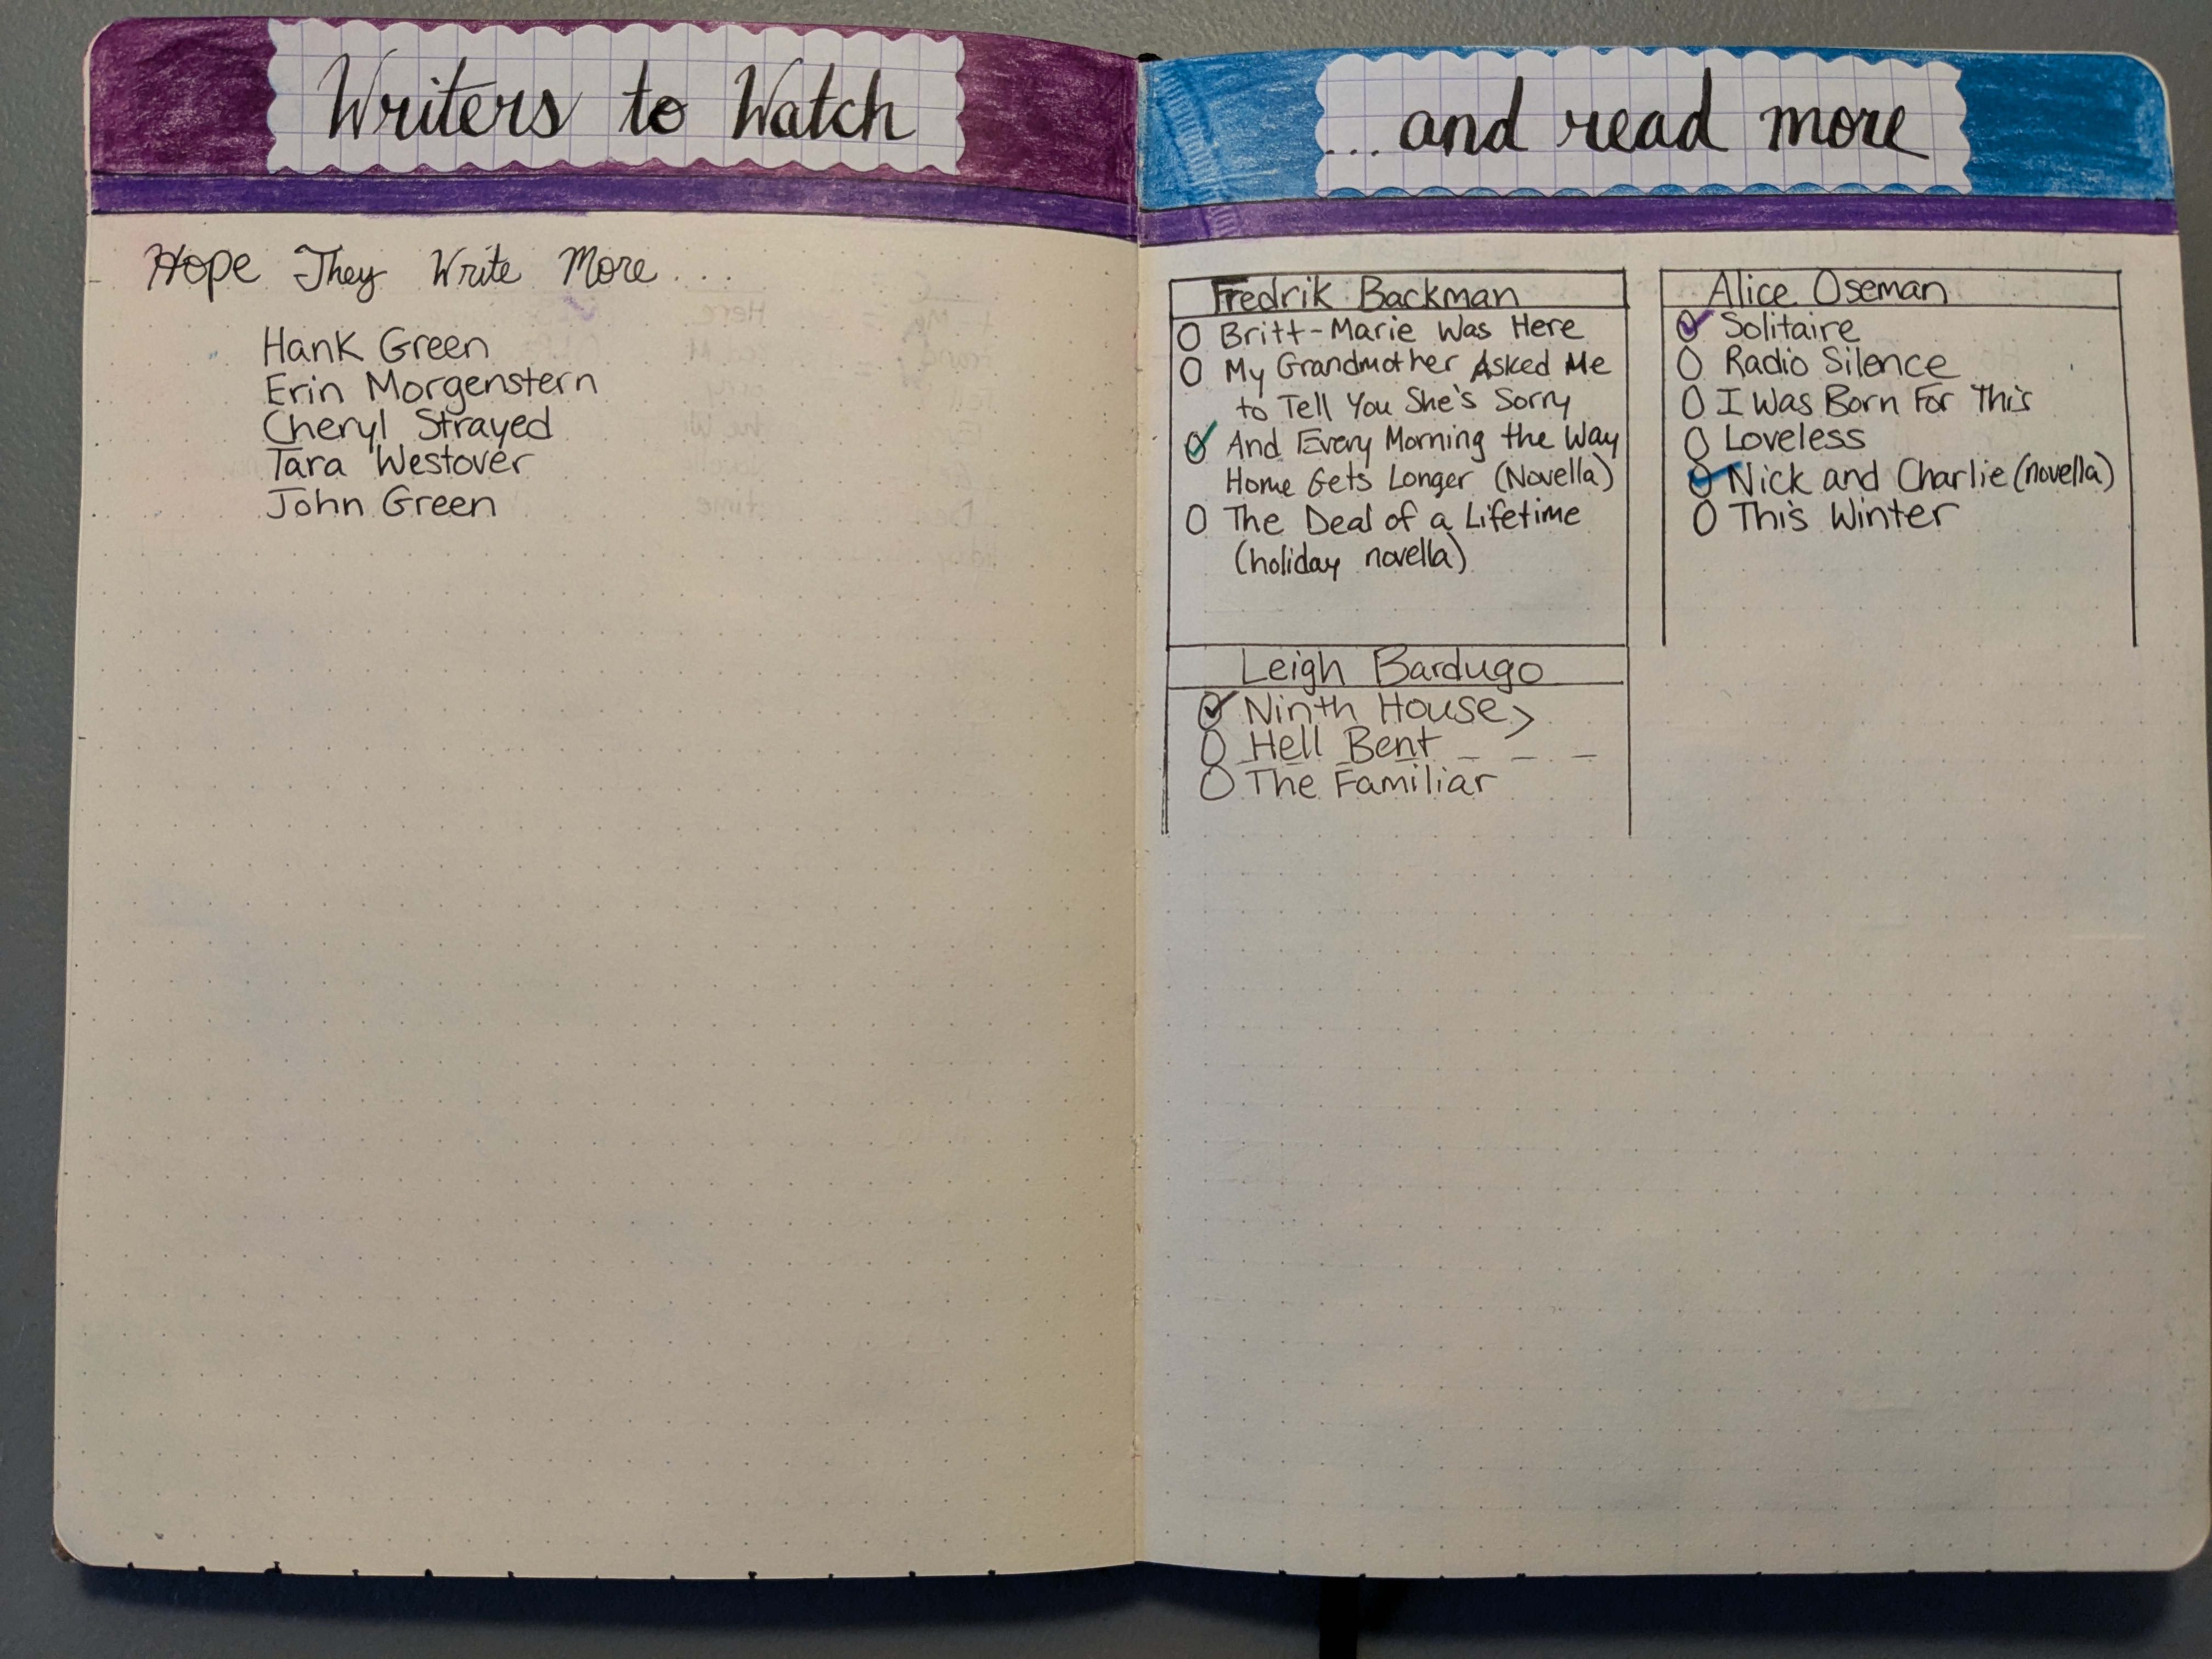 Writers to Watch
Hope They Write More...
Hank Green
Erin Morgenstern
Cheryl Strayed
Tara Westover
John Green
...and read more
Fredrik Backman
Britt-Marie Was Here
My Grandmother Asked Me
to Tell You She's Sorry
And Every Morning the Way
Home Gets Longer (Novella)
The Deal of a Lifetime
(holiday novella)
Alice Oseman
Solitaire
Radio Silence
I Was Born For This
Loveless
Nick and Charlie (novella)
This Winter
Leigh Bardugo
Ninth House
Hell Bent
The Familiar